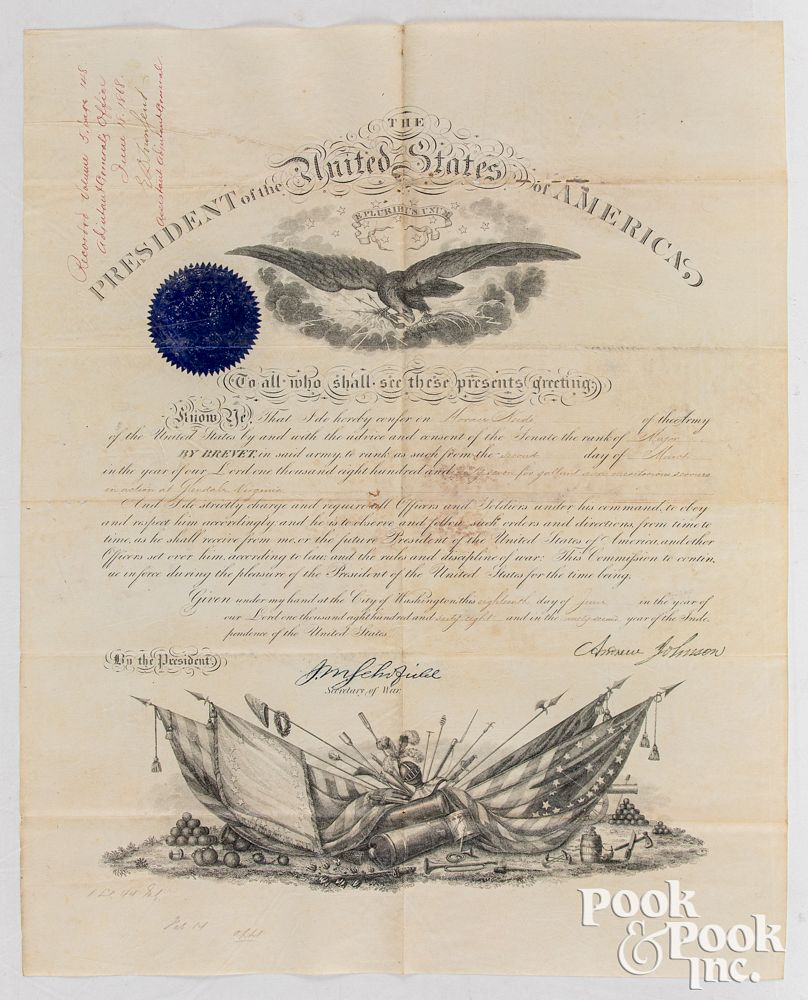 Recorded Volume 5, page 48
Adjutant General's Office
June 18, 1868.
E D Townsend
Assistant Adjutant General
THE
PRESIDENT of the United States of AMERICA,
E PLURIBUS UNUM
To all who shall see these presents greeting:
Know Ye, That I do hereby confer on Horace of the Army
of the United States by and with the advice and consent of the Senate the rank of Major
BY BREVET, in said army, to rank as such from the second day of March
in the year of our Lord one thousand eight hundred and sixty seven for gallant and meritorious services
in action at Glendale, Virginia
And I do strictly charge and require all Officers and Soldiers under his command, to obey
and respect him accordingly: and he is to observe and follow such orders and directions, from time to
time, as he shall receive from me, or the future President of the United States of America, and other
Officers set over him, according to law, and the rules and discipline of war: This Commission to contin,
ue in force during the pleasure of the President of the United States for the time being.
Given under my hand at the City of Washington, this eighteenth day of June in the year of
our Lord one thousand eight hundred and sixty eight and in the ninety second year of the Inde,
pendence of the United States.
Andrew Johnson
By the President,
J M Schofield
Secretary of War.
Pook
& Pook
Inc.